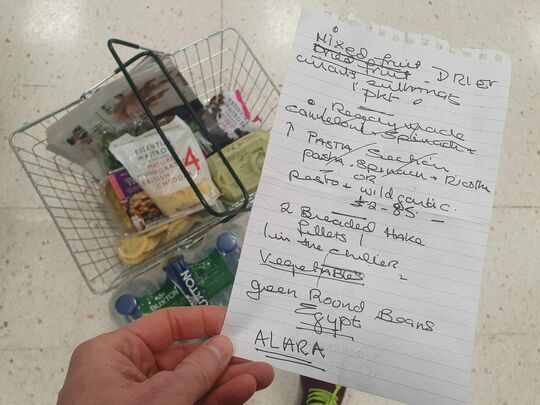 Mixed fruit
Dried fruit - DRIER
currants sultanas
1 pkt.
Ready made
Cannelloni Spinach +
↑ PASTA Section
pasta - Spinach + Ricotta
OR
Pesto + wild garlic.
£2-85
2 Breaded HAKE
fillets 1
1 in the chiller
VegeTABles
green Roond Beans
Egypt
ALARA
ESSENTIAL
WAITROSE
MATURE
BRITISH
CHEDDAR
4
BUXTON
BUXTON